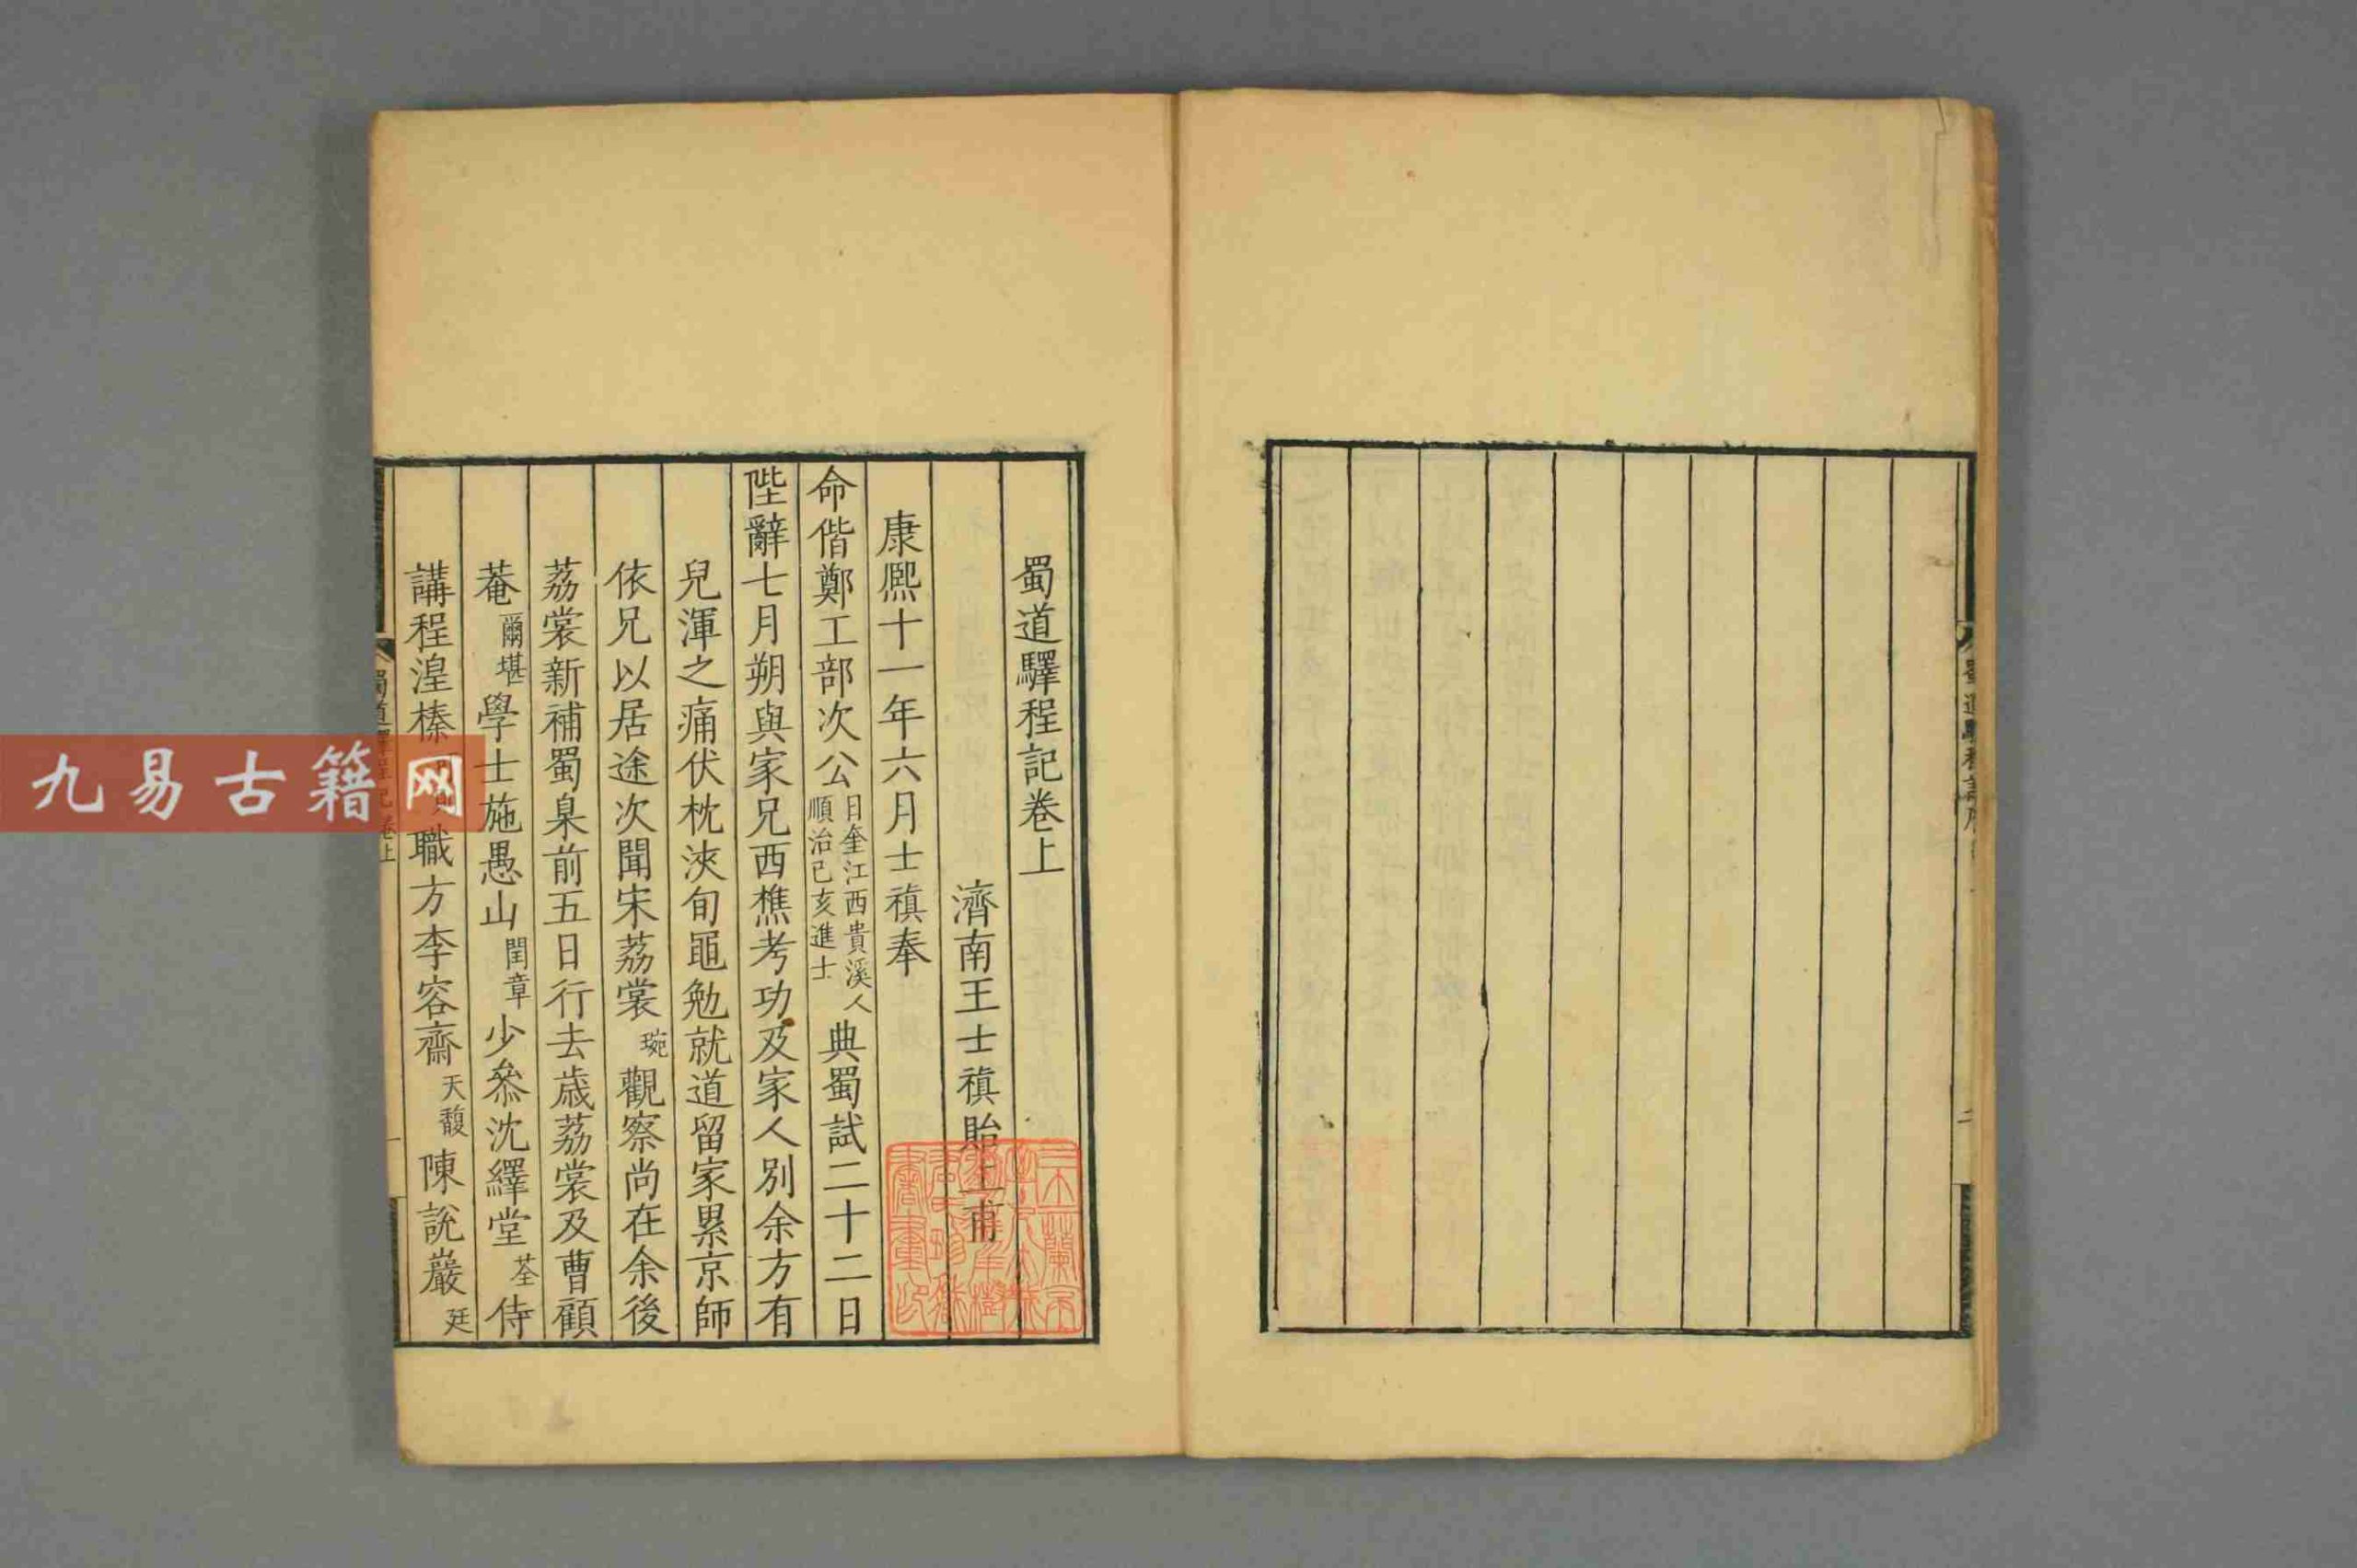 蜀道驛程記卷上
濟南王士禛貽上甫
康熙十一年六月士禛奉
命偕鄭工部次公日奎江西貴溪人順治己亥進士典蜀試二十二日
陛辭七月朔與家兄西樵考功及家人別余方有
兒渾之痛伏枕浹旬黽勉就道留家累京師
依兄以居途次聞宋荔裳琬觀察尚在余後
荔裳新補蜀臬前五日行去歳荔裳及曹顧
菴爾堪學士施愚山閏章少叅沈繹堂荃侍
講程湟榛職方李容齋天馥陳說巖廷
蜀道驛程記卷上
一
蜀道驛程記序
二
九易古籍网